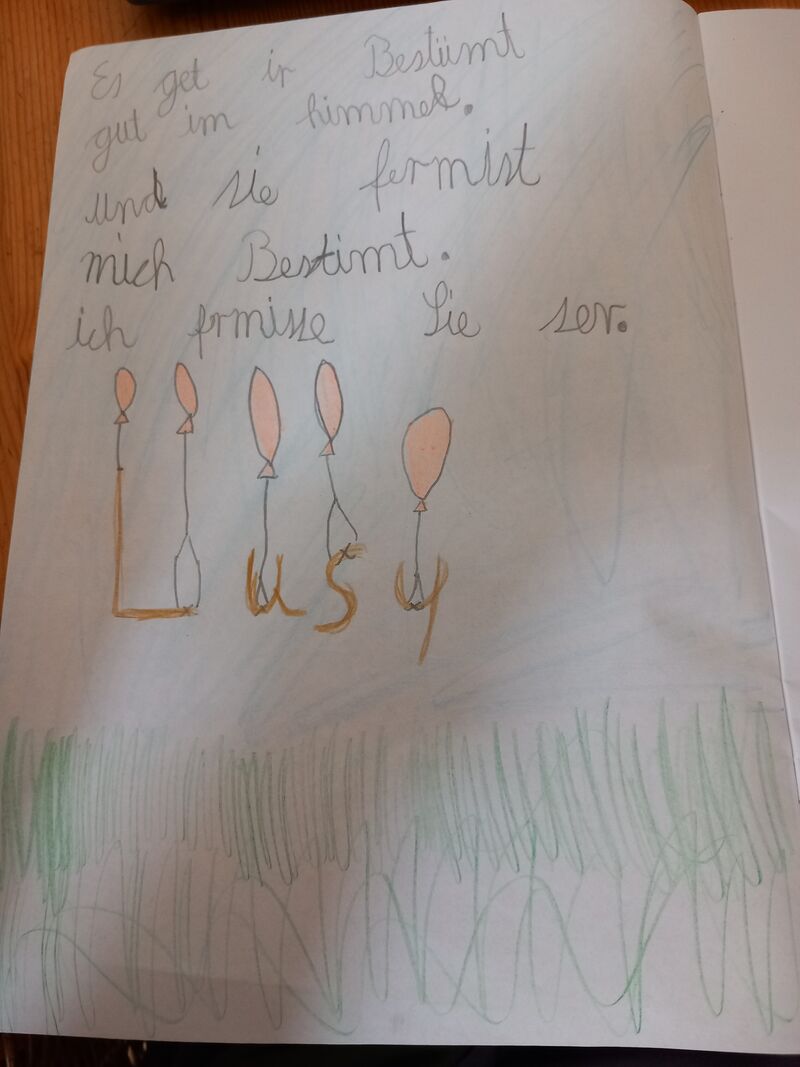 Es get ir Bestimt
gut im himmel.
und sie fermist
mich Bestimt.
ich frmisse Sie ser.
Lusy